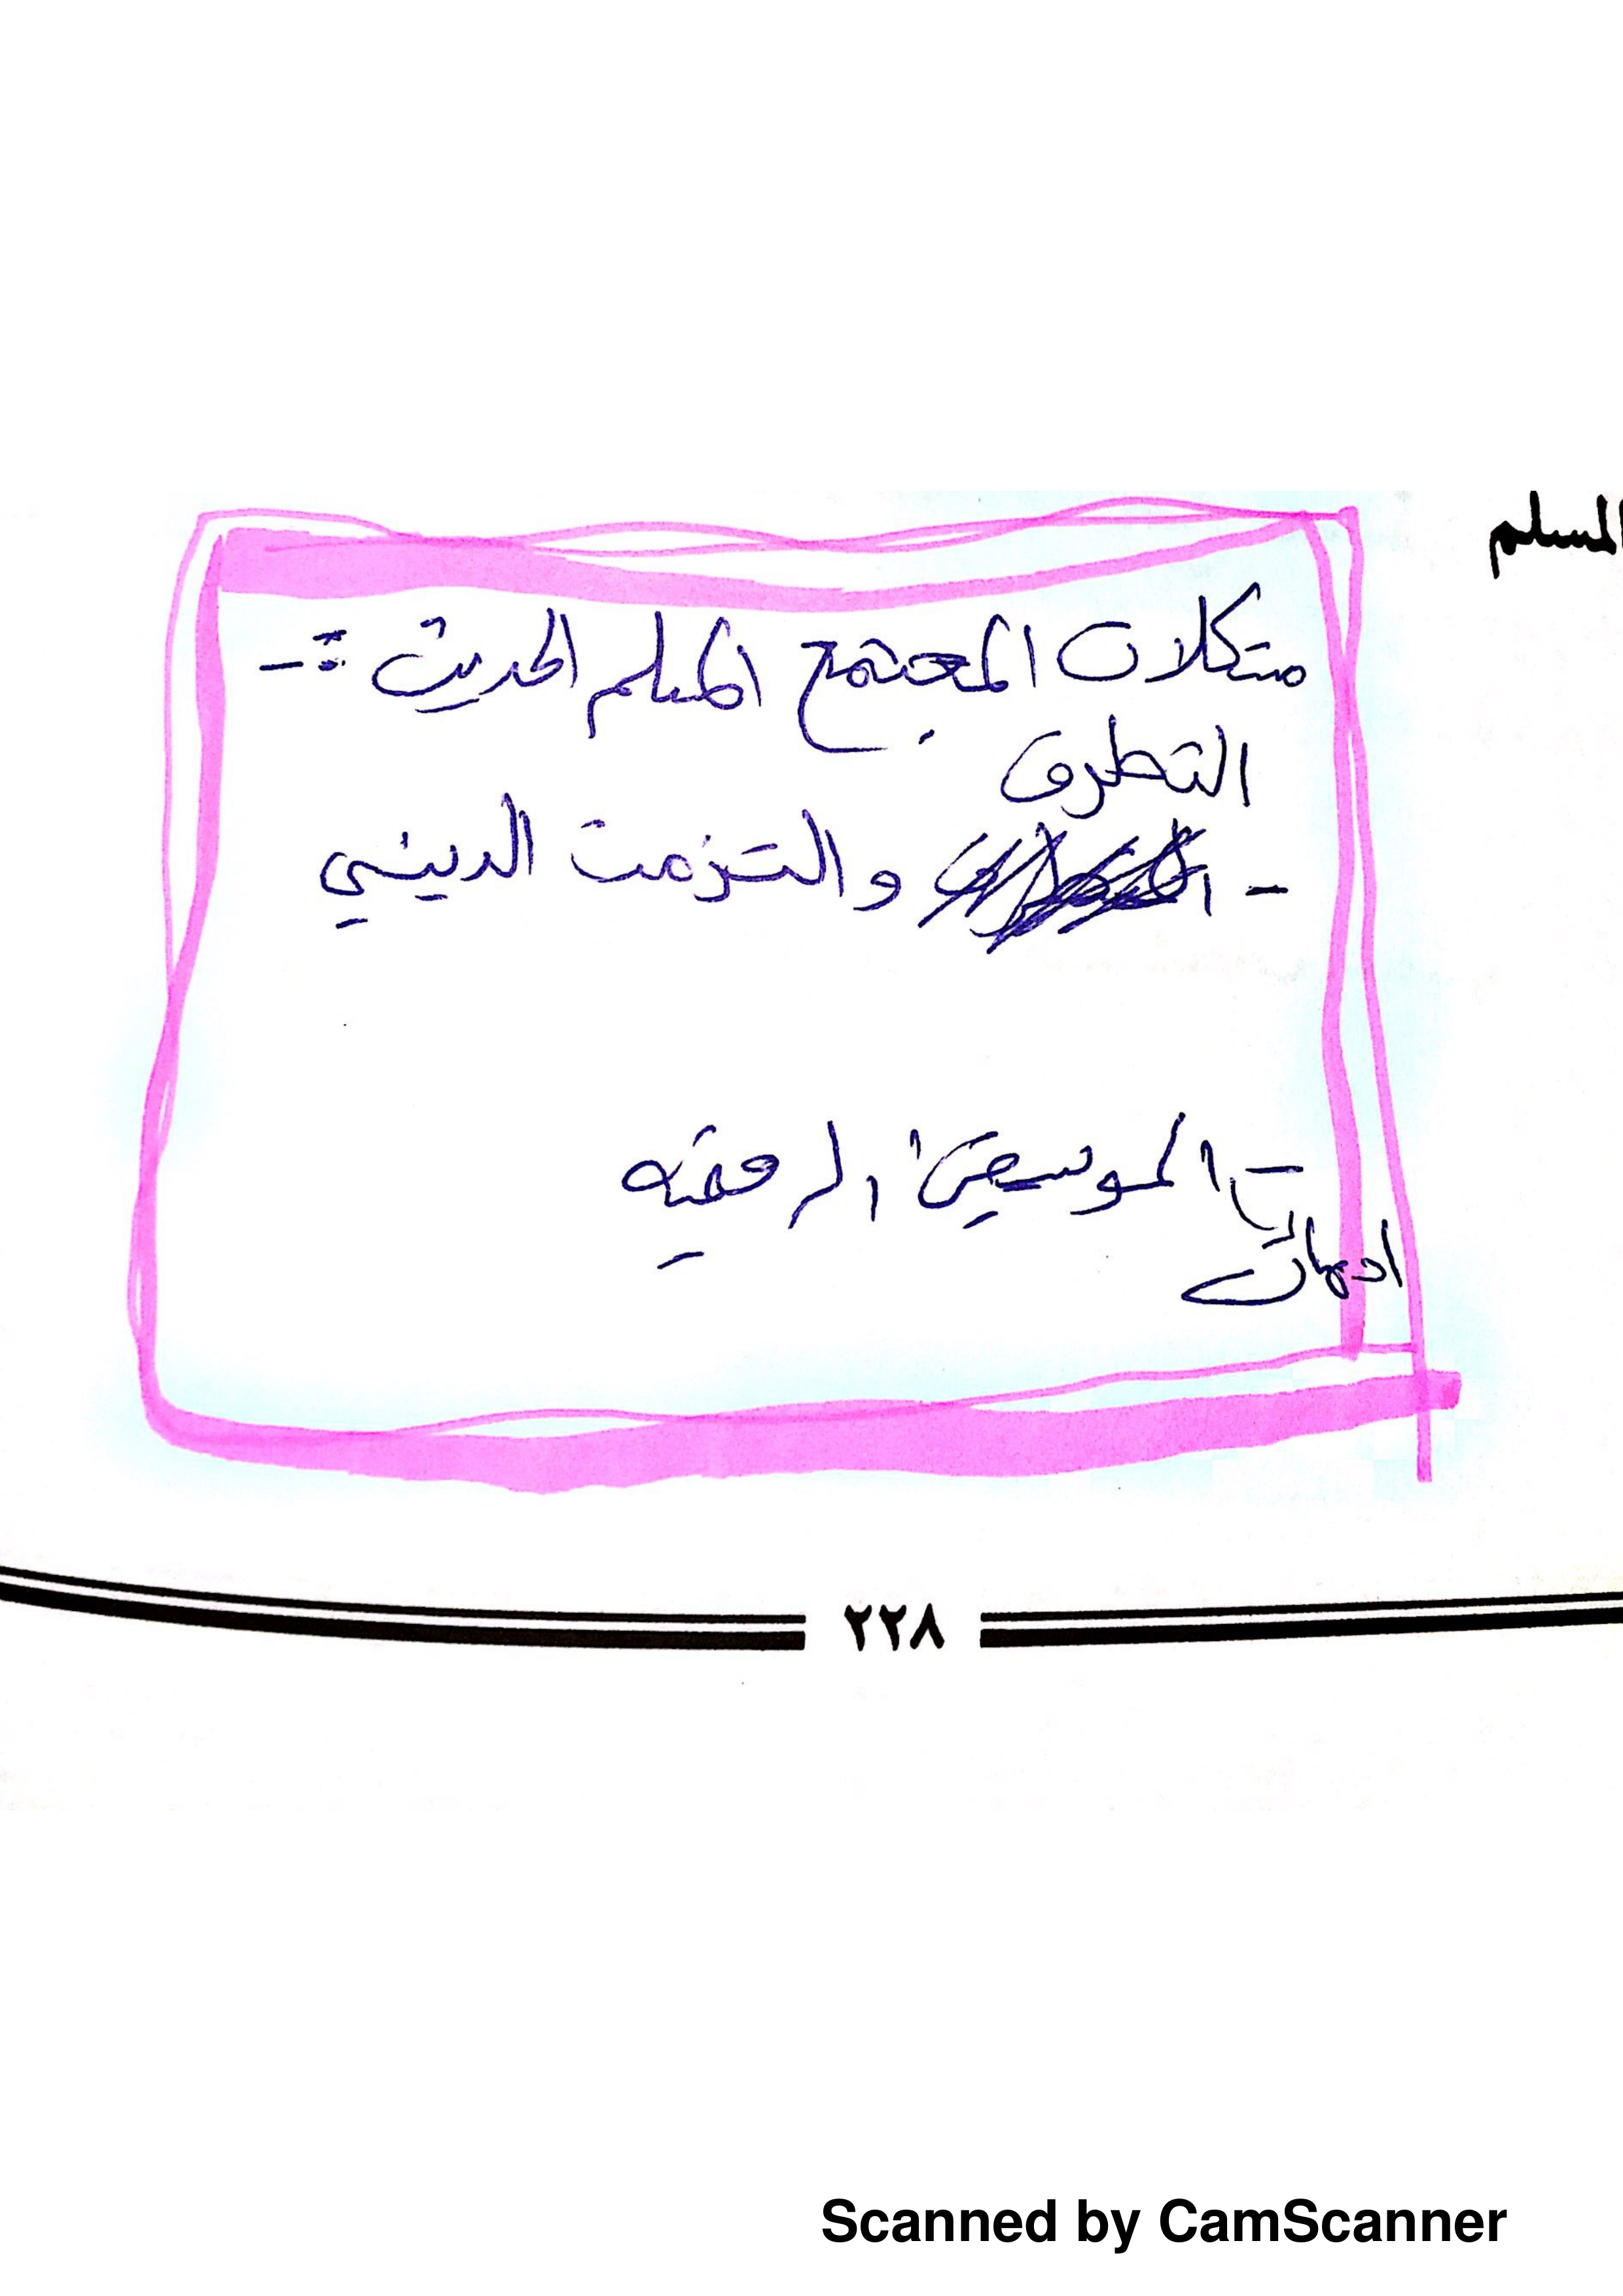 المسلم
مشكلات المجتمع المسلم الحديث :-
التطرف
- والتزمت الديني
- الموسيقى الرقميه
ادمان
٢٢٨
Scanned by CamScanner